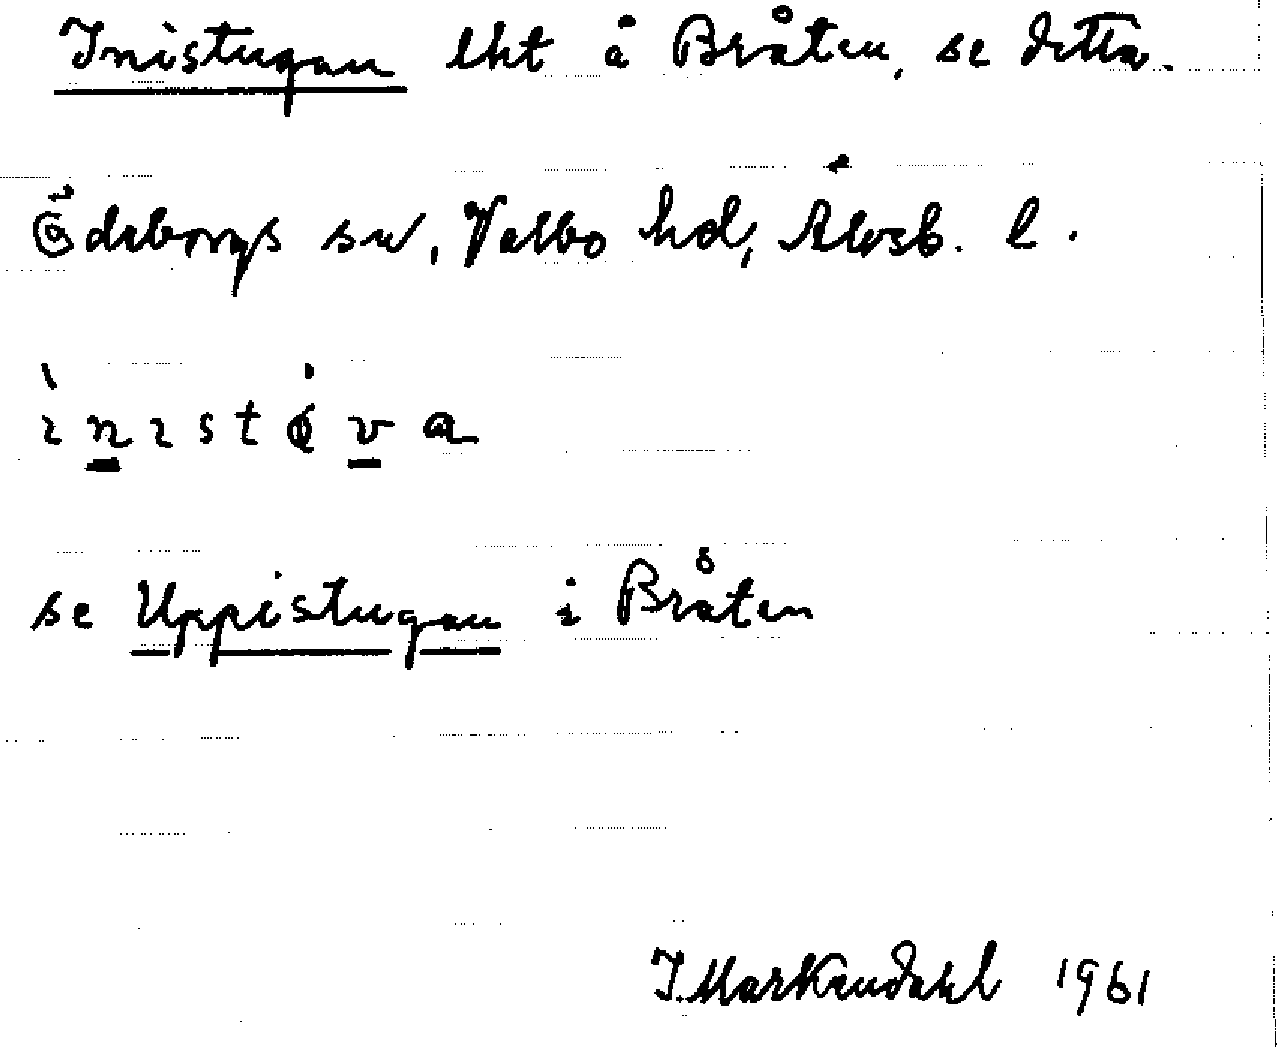 Inistugan lht å Bråten, se detta.
Ödeborgs sn, Valbo hd, Älvsb. l.
ìnıstǿva
se Uppistugan i Bråten
I. Markendahl 1961